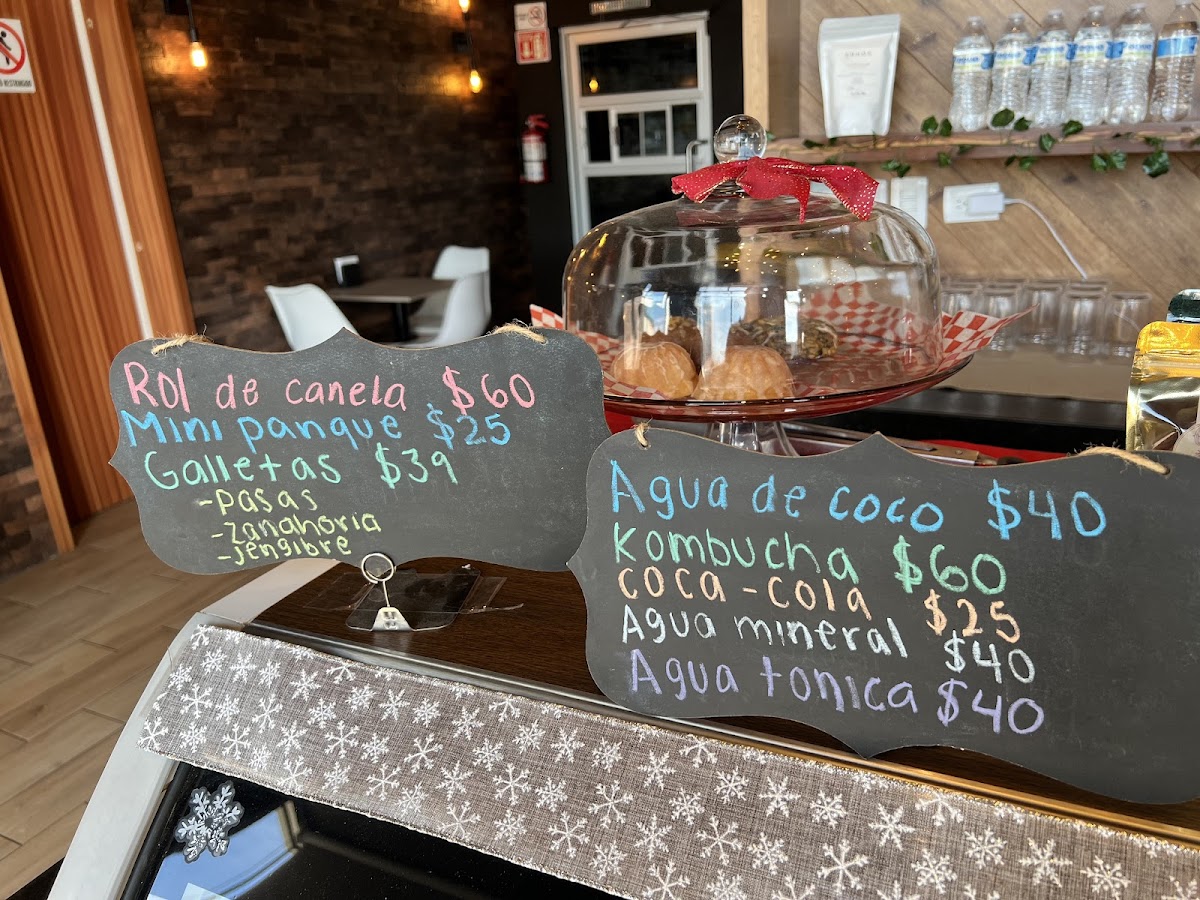 Rol de canela $60
Mini panque $25
Galletas $39
-pasas
-zanahoria
-jengibre
Agua de coco $40
Kombucha $60
coca-cola $25
Agua mineral $40
Agua tonica $40